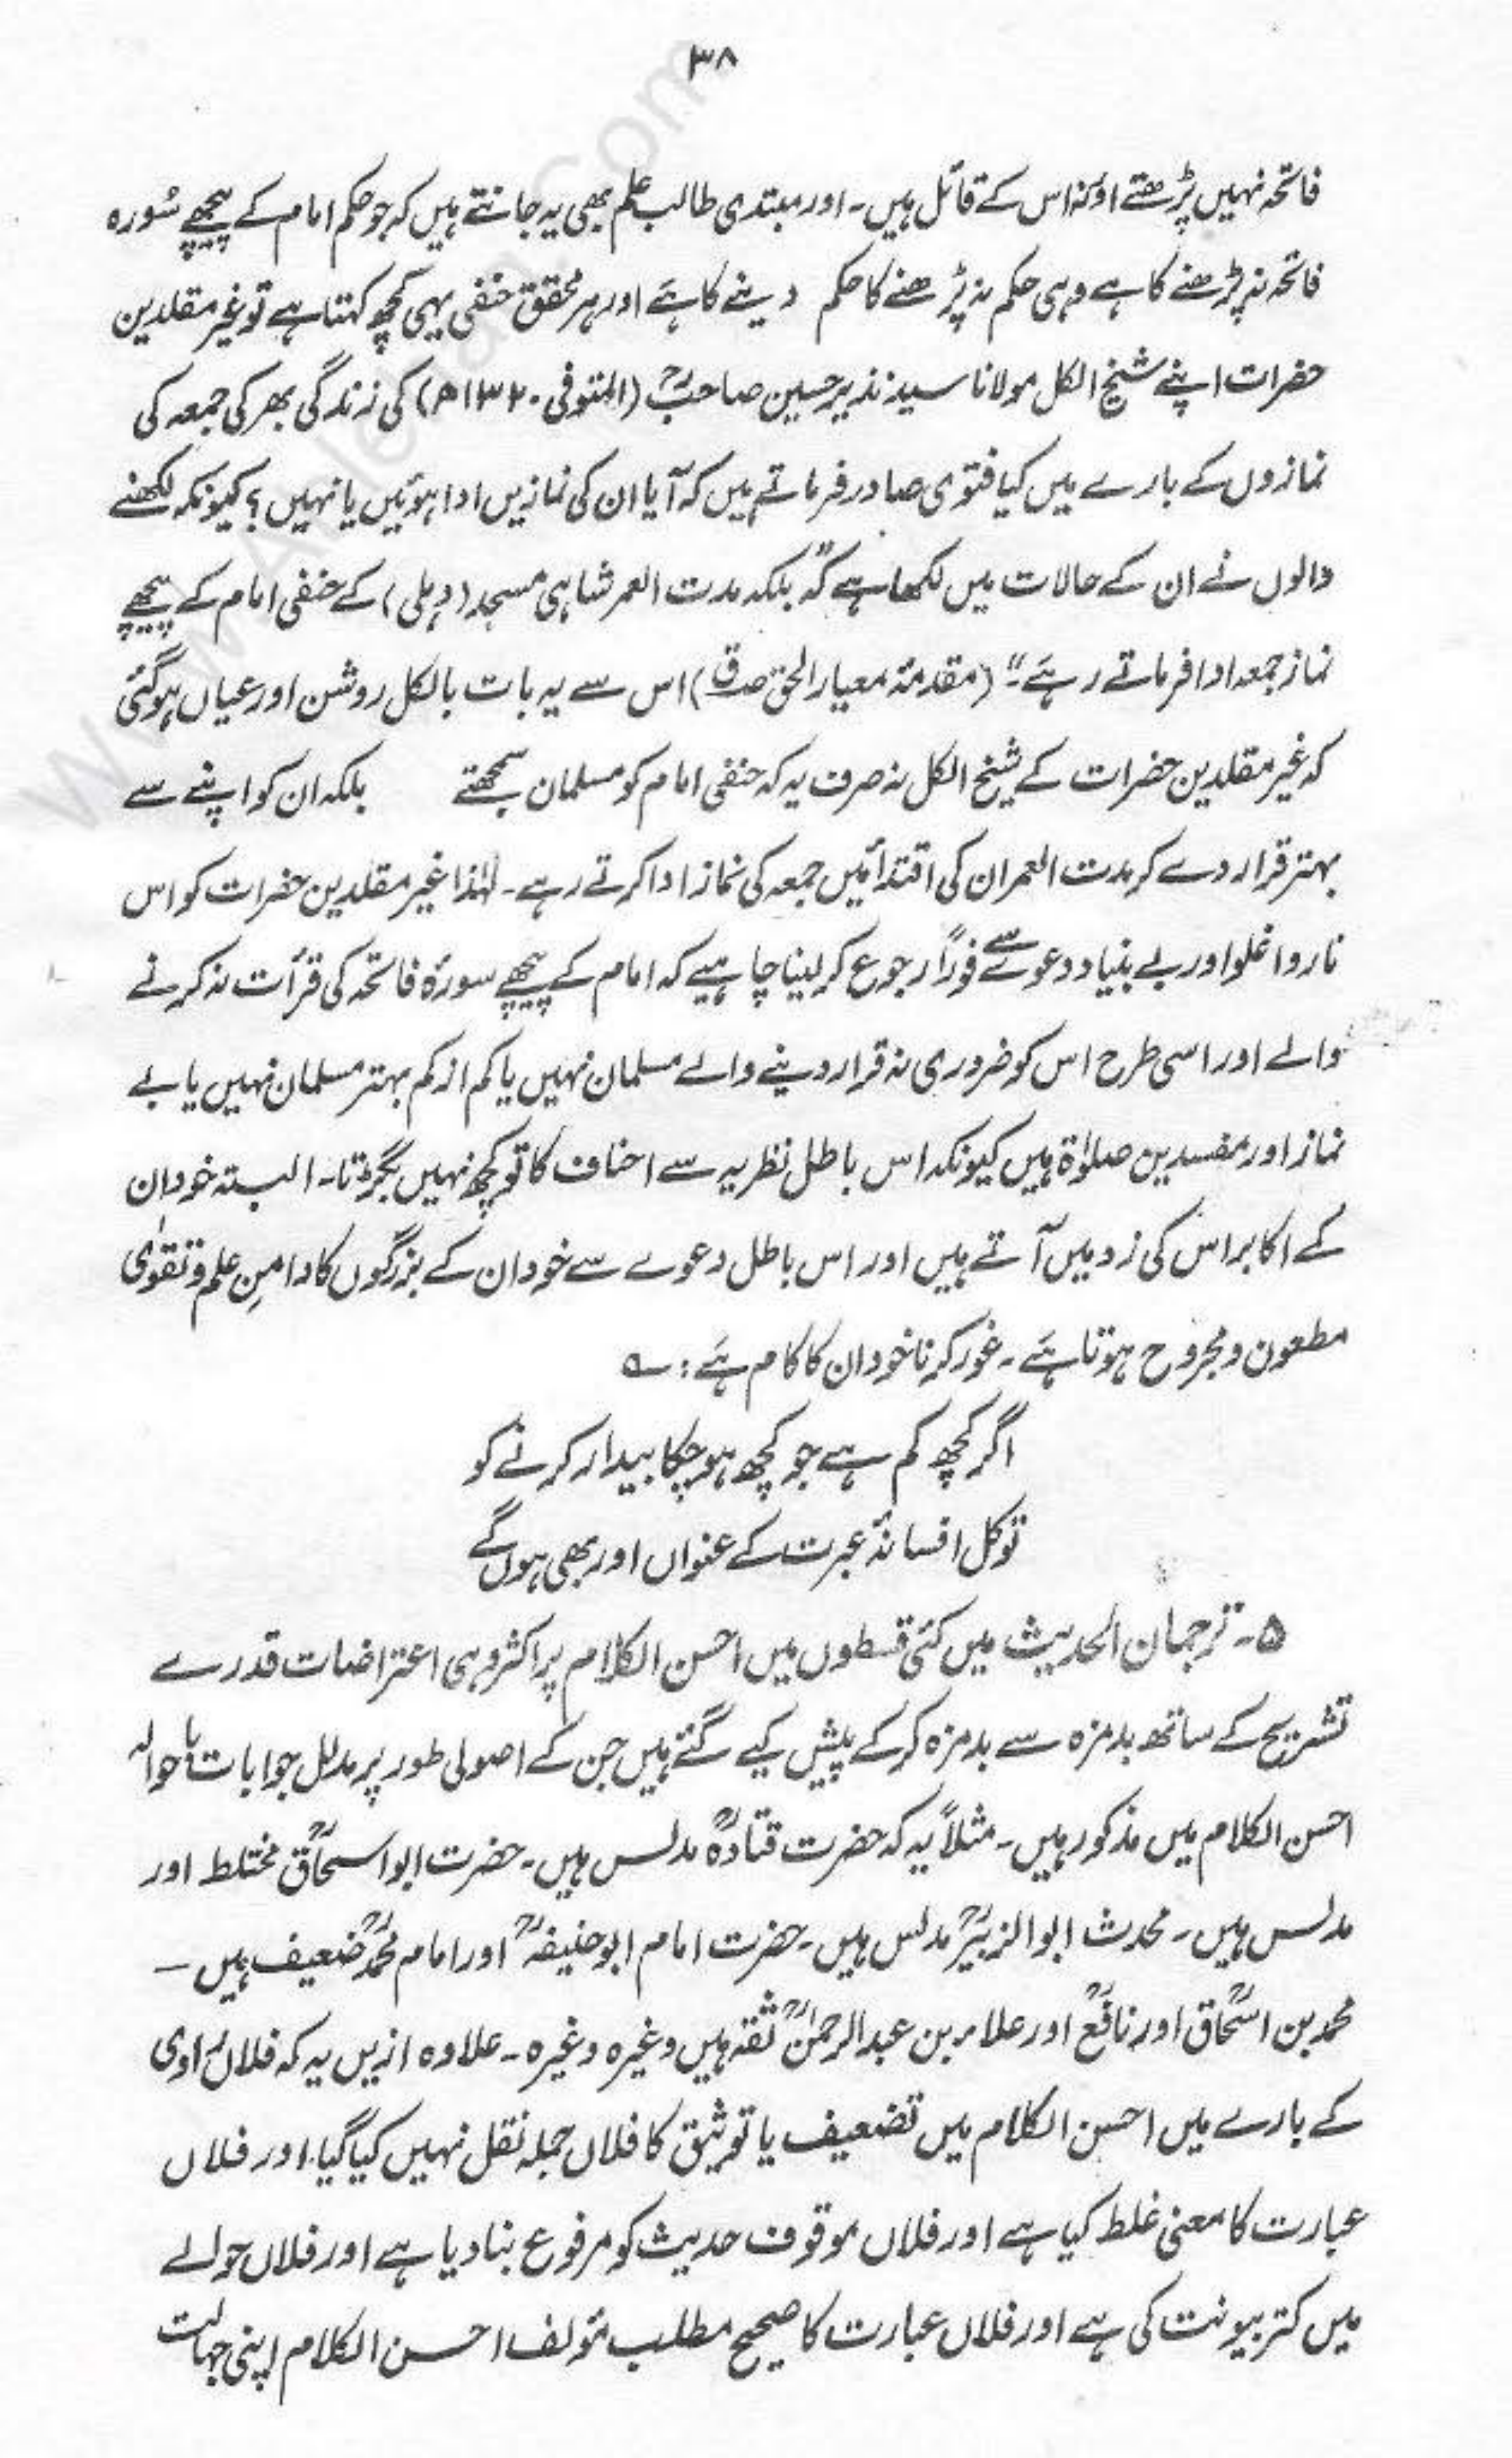 ۳۸
فاتحہ نہیں پڑھتے اور نہ اس کے قائل ہیں۔ اور مبتدی طالب علم بھی یہ جانتے ہیں کہ جو حکم امام کے پیچھے سُورہ
فاتحہ نہ پڑھنے کا ہے وہی حکم نہ پڑھنے کا حکم دینے کا ہے اور ہر محقق حنفی یہی کچھ کہتا ہے تو غیر مقلدین
حضرات اپنے شیخ الکل مولانا سید نذیر حسین صاحبؒ (المتوفی ۱۳۲۰ھ) کی زندگی بھر کی جمعہ کی
نمازوں کے بارے میں کیا فتوٰی صادر فرماتے ہیں کہ آیا ان کی نمازیں ادا ہوئیں یا نہیں؟ کیونکہ لکھنے
والوں نے ان کے حالات میں لکھا ہے کہ "بلکہ مدت العمر شاہی مسجد (دہلی) کے حنفی امام کے پیچھے
نماز جمعہ ادا فرماتے رہے" (مقدمۂ معیار الحق) اس سے یہ بات بالکل روشن اور عیاں ہو گئی
کہ غیر مقلدین حضرات کے شیخ الکل نہ صرف یہ کہ حنفی امام کو مسلمان سمجھتے بلکہ ان کو اپنے سے
بہتر قرار دے کر مدت العمر ان کی اقتداء میں جمعہ کی نماز ادا کرتے رہے۔ لہٰذا غیر مقلدین حضرات کو اس
ناروا غلو اور بے بنیاد دعوے سے فوراً رجوع کر لینا چاہیے کہ امام کے پیچھے سورۂ فاتحہ کی قرأت نہ کرنے
والے اور اسی طرح اس کو ضروری نہ قرار دینے والے مسلمان نہیں یا کم از کم بہتر مسلمان نہیں یا بے
نماز اور مفسدین صلوٰۃ ہیں کیونکہ اس باطل نظریہ سے احناف کا تو کچھ نہیں بگڑتا۔ البتہ خود ان
کے اکابر اس کی زد میں آتے ہیں اور اس باطل دعوے سے خود ان کے بزرگوں کا دامنِ علم و تقوٰی
مطعون و مجروح ہوتا ہے۔ غور کرنا خود ان کا کام ہے: ؎
اگر کچھ کم ہے جو کچھ ہو چکا بیدار کرنے کو
تو کل افسانۂ عبرت کے عنواں اور بھی ہوں گے
۵۔ ترجمان الحدیث میں کئی قسطوں میں احسن الکلام پر اکثر وہی اعتراضات قدرے
تشریح کے ساتھ بدمزہ سے بدمزہ کر کے پیش کیے گئے ہیں جن کے اصولی طور پر مدلل جوابات باحوالہ
احسن الکلام میں مذکور ہیں۔ مثلاً یہ کہ حضرت قتادہؒ مدلس ہیں۔ حضرت ابو اسحاقؒ مختلط اور
مدلس ہیں۔ محدث ابو الزبیرؒ مدلس ہیں۔ حضرت امام ابو حنیفہؒ اور امام محمدؒ ضعیف ہیں۔
محمد بن اسحاقؒ اور نافعؒ اور علاء بن عبد الرحمٰنؒ ثقہ ہیں وغیرہ وغیرہ۔ علاوہ ازیں یہ کہ فلاں راوی
کے بارے میں احسن الکلام میں تضعیف یا توثیق کا فلاں جملہ نقل نہیں کیا گیا اور فلاں
عبارت کا معنیٰ غلط کیا ہے اور فلاں موقوف حدیث کو مرفوع بنا دیا ہے اور فلاں حوالے
میں کتر بیونت کی ہے اور فلاں عبارت کا صحیح مطلب مؤلف احسن الکلام اپنی جہالت